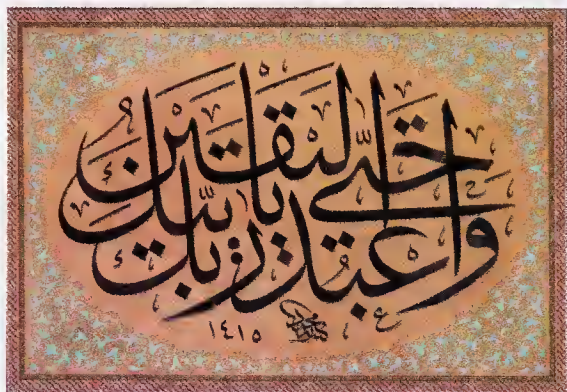 واعبد ربك حتى يأتيك اليقين
١٤١٥